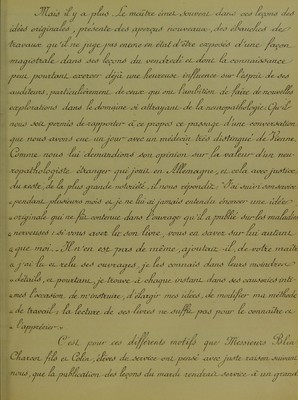 Mais il y a plus. Le maître émet souvent dans ces leçons des
idées originales, présente des aperçus nouveaux, des ébauches de
travaux qu'il ne juge pas encore en état d'être exposés d'une façon
magistrale dans ses leçons du vendredi et dont la connaissance
peut pourtant exercer déjà une heureuse influence sur l'esprit de ses
auditeurs, particulièrement de ceux qui ont l'ambition de faire de nouvelles
explorations dans le domaine si attrayant de la neuropathologie. Qu'il
nous soit permis de rapporter à ce propos ce passage d'une conversation
que nous avons eue un jour avec un médecin très distingué de Vienne.
Comme nous lui demandions son opinion sur la valeur d'un neu-
ropathologiste étranger qui jouit en Allemagne, et cela avec justice
du reste, de la plus grande notoriété, il nous répondit: "J'ai suivi son service
"pendant plusieurs mois et je ne lui ai jamais entendu énoncer une idée
"originale qui ne fût contenue dans l'ouvrage qu'il a publié sur les maladies
"nerveuses: si vous avez lu son livre, vous en savez sur lui autant
"que moi. Il n'en est pas de même, ajoutait-il, de votre maître
"j'ai lu et relu ses ouvrages, je les connais dans leurs moindres
"détails, et pourtant, je trouve à chaque instant dans ses causeries inti-
"mes l'occasion de m'instruire, d'élargir mes idées, de modifier ma méthode
"de travail; la lecture de ses livres ne suffit pas pour le connaître et
"l'apprécier".
C'est pour ces différents motifs que Messieurs Blin
Charcot fils et Colin, élèves de service ont pensé avec juste raison suivant
nous, que la publication des leçons du mardi rendrait service à un grand